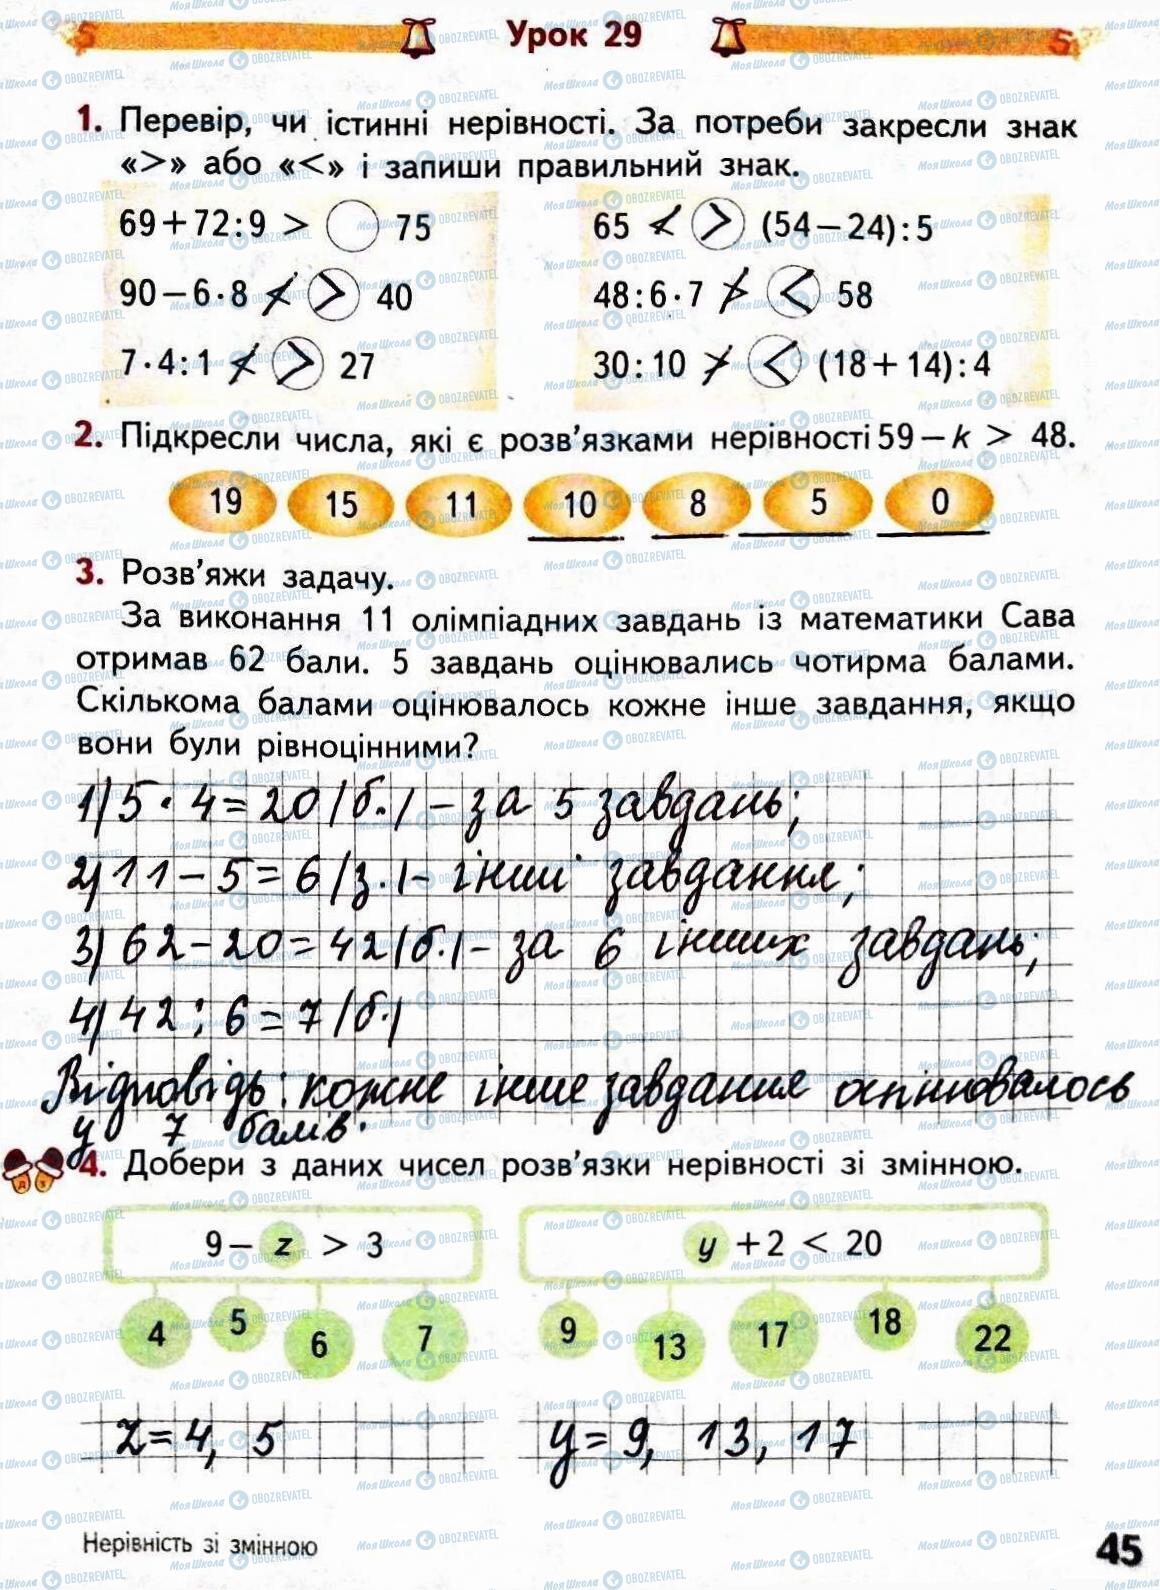 Урок 29
1. Перевір, чи істинні нерівності. За потреби закресли знак
«>» або «<» і запиши правильний знак.
69+72:9 > 75
65 < > (54−24):5
90−6·8 < > 40
48:6·7 > < 58
7·4:1 < > 27
30:10 > < (18+14):4
2. Підкресли числа, які є розв'язками нерівності 59−k > 48.
19 15 11 10 8 5 0
3. Розв'яжи задачу.
За виконання 11 олімпіадних завдань із математики Сава
отримав 62 бали. 5 завдань оцінювались чотирма балами.
Скількома балами оцінювалось кожне інше завдання, якщо
вони були рівноцінними?
1) 5·4=20 (б.) – за 5 завдань;
2) 11–5=6 (з.) – інші завдання;
3) 62–20=42 (б.) – за 6 інших завдань;
4) 42:6=7 (б.)
Відповідь: кожне інше завдання оцінювалось
у 7 балів.
4. Добери з даних чисел розв'язки нерівності зі змінною.
9− z > 3
y +2 < 20
4 5 6 7
9 13 17 18 22
z=4, 5
y=9, 13, 17
Нерівність зі змінною
45
МояШкола OBOZREVATEL